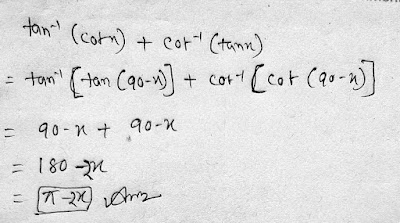 tan⁻¹ (cotx) + cot⁻¹ (tanx)
= tan⁻¹ [tan (90-x)] + cot⁻¹ [cot (90-x)]
= 90-x + 90-x
= 180 -2x
= π-2x Ans